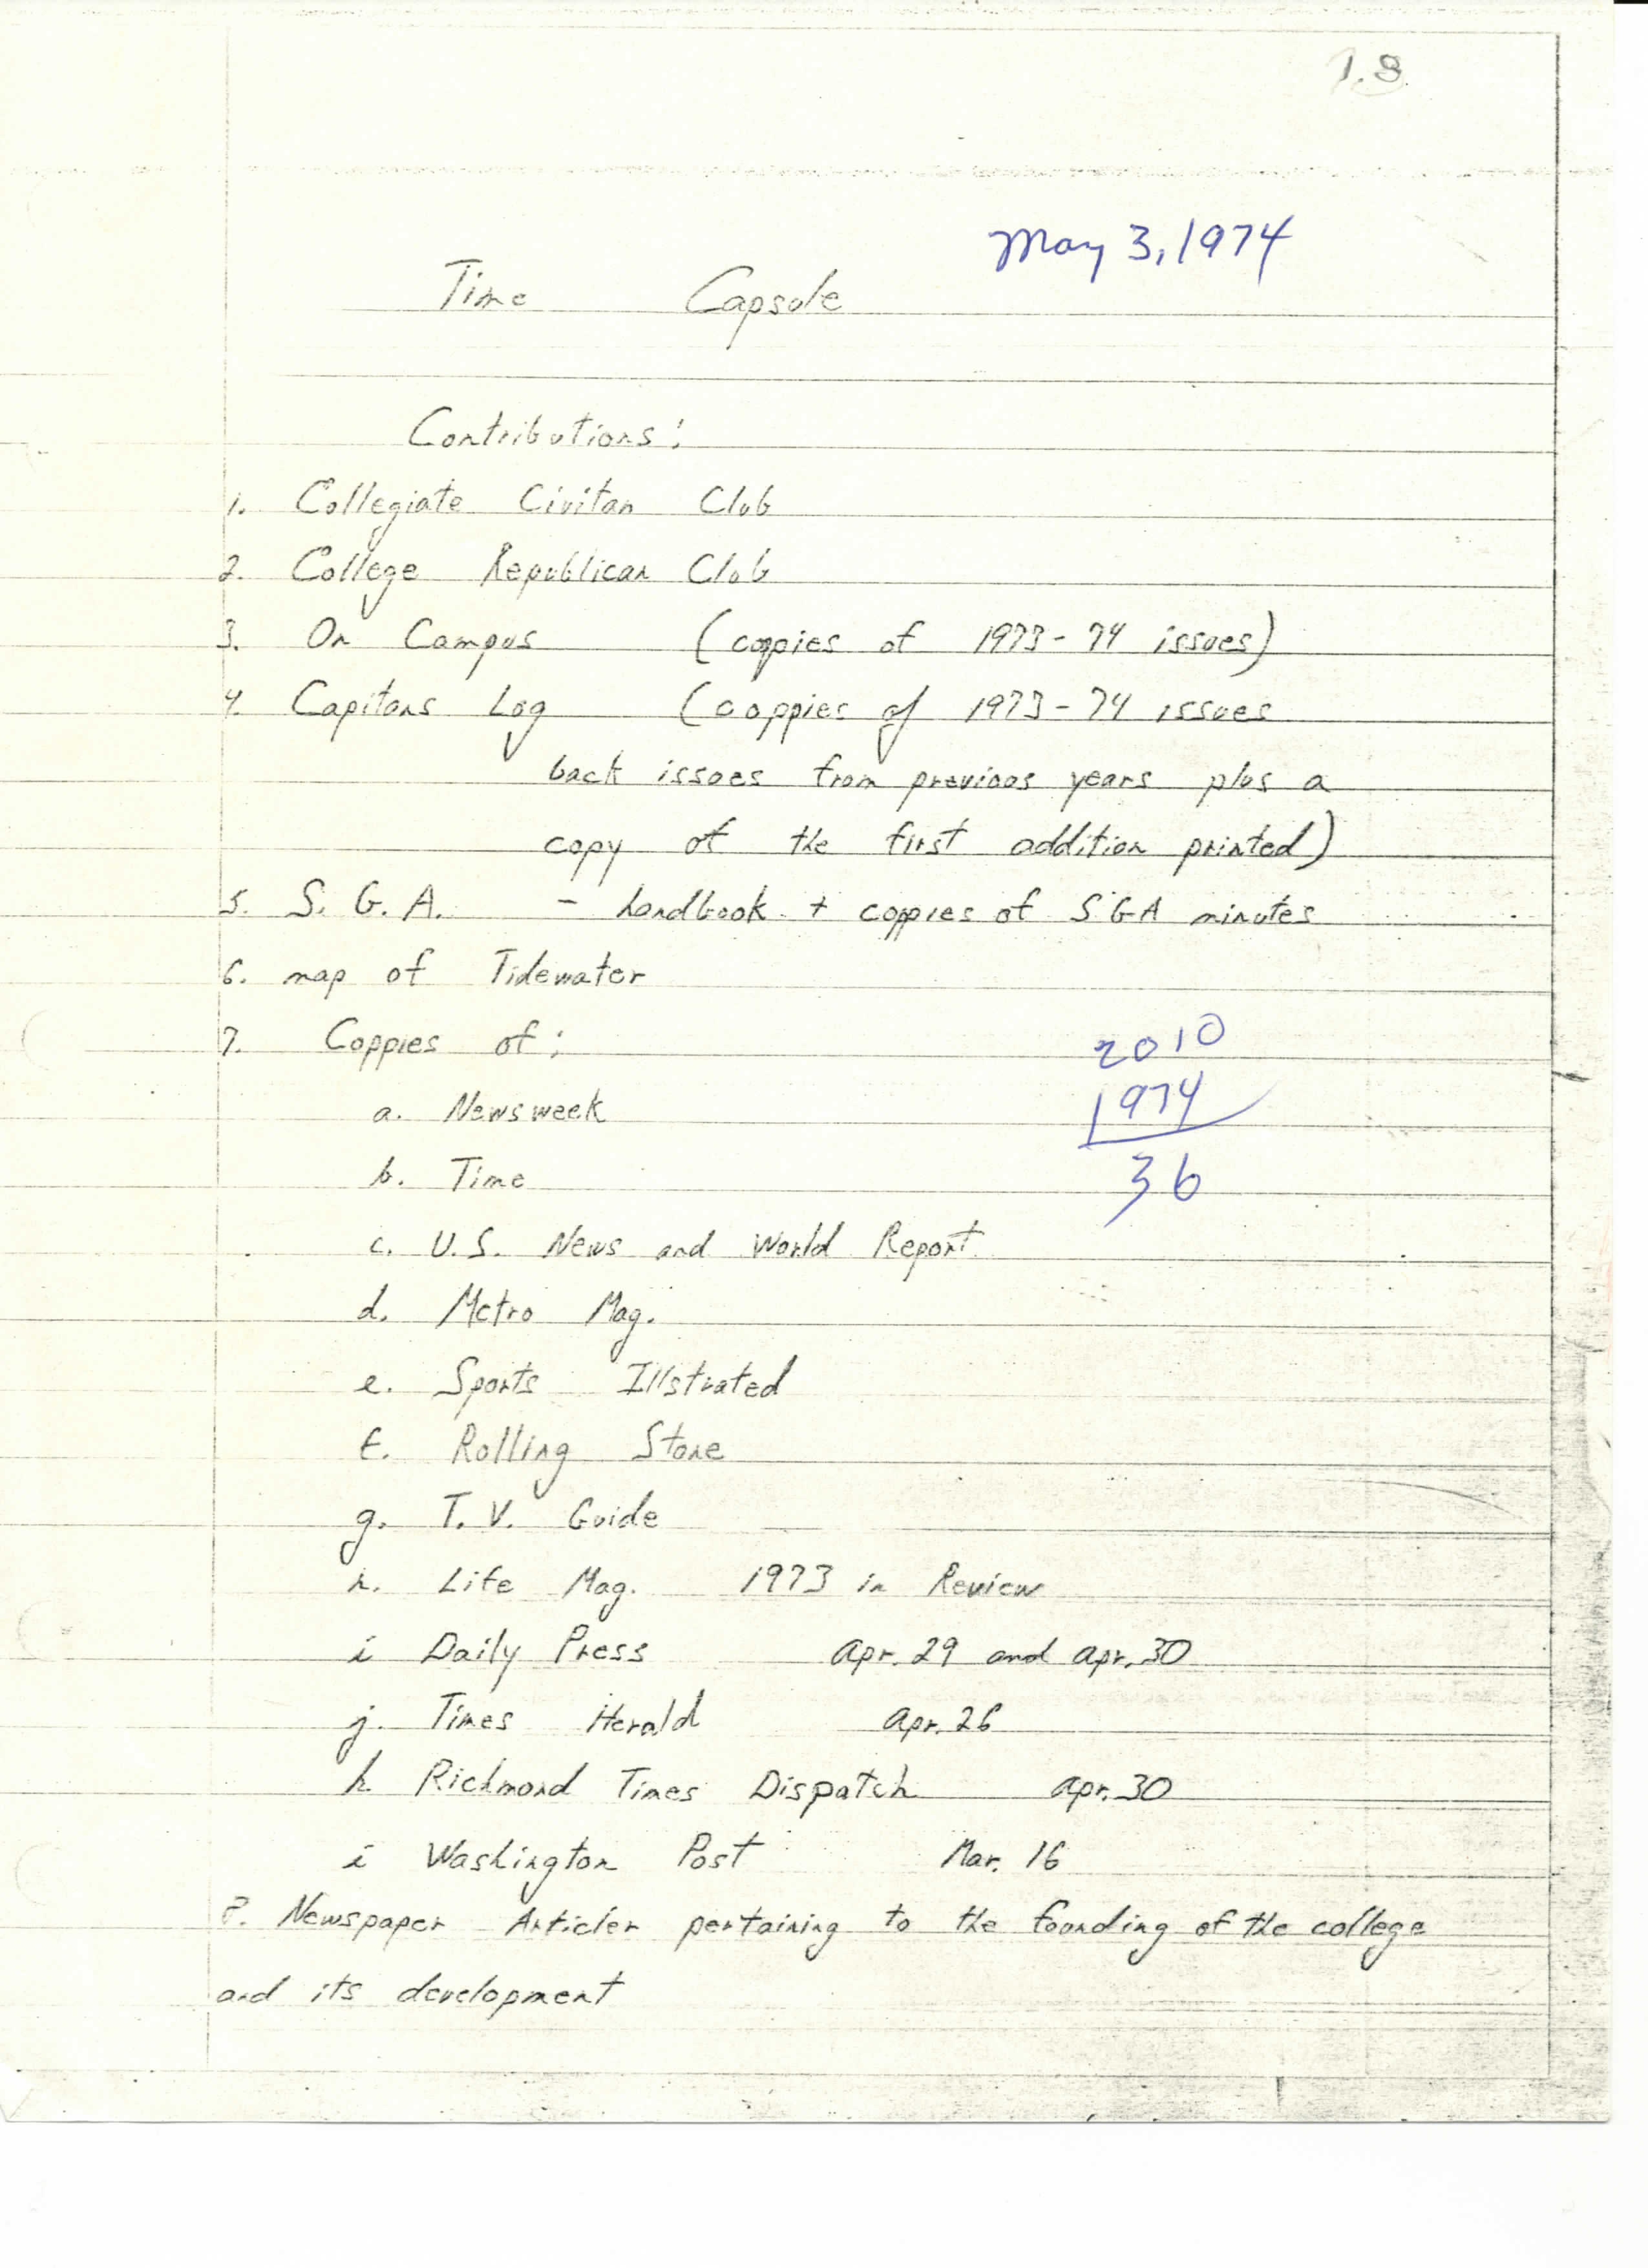 1.8
May 3, 1974
Time Capsule
Contributions:
1. Collegiate Civitan Club
2. College Republican Club
3. On Campus (coppies of 1973-74 issues)
4. Capitans Log (coppies of 1973-74 issues
back issues from previous years plus a
copy of the first addition printed)
5. S. G. A. - handbook + coppies of SGA minutes
6. map of Tidewater
7. Coppies of:
2010
a. Newsweek
1974
b. Time
36
c. U.S. News and World Report
d. Metro Mag.
e. Sports Illstrated
f. Rolling Stone
g. T.V. Guide
h. Life Mag. 1973 in Review
i Daily Press apr. 29 and apr. 30
j. Times Herald apr. 26
h Richmond Times Dispatch apr. 30
i Washington Post Mar. 16
8. Newspaper Articles pertaining to the founding of the college
and its development